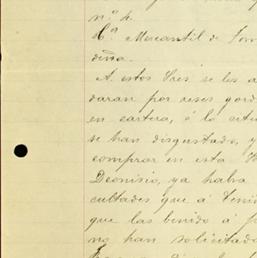 n.º 4.
C.ª Mercantil de Tor
A estos Sres. se les a
daran por reses gord
en cartera, ó la
se han disgustado, y
comprar en esta
Deonisio, ya habra
cultades que á Teni
que las benido á
no han solicitado